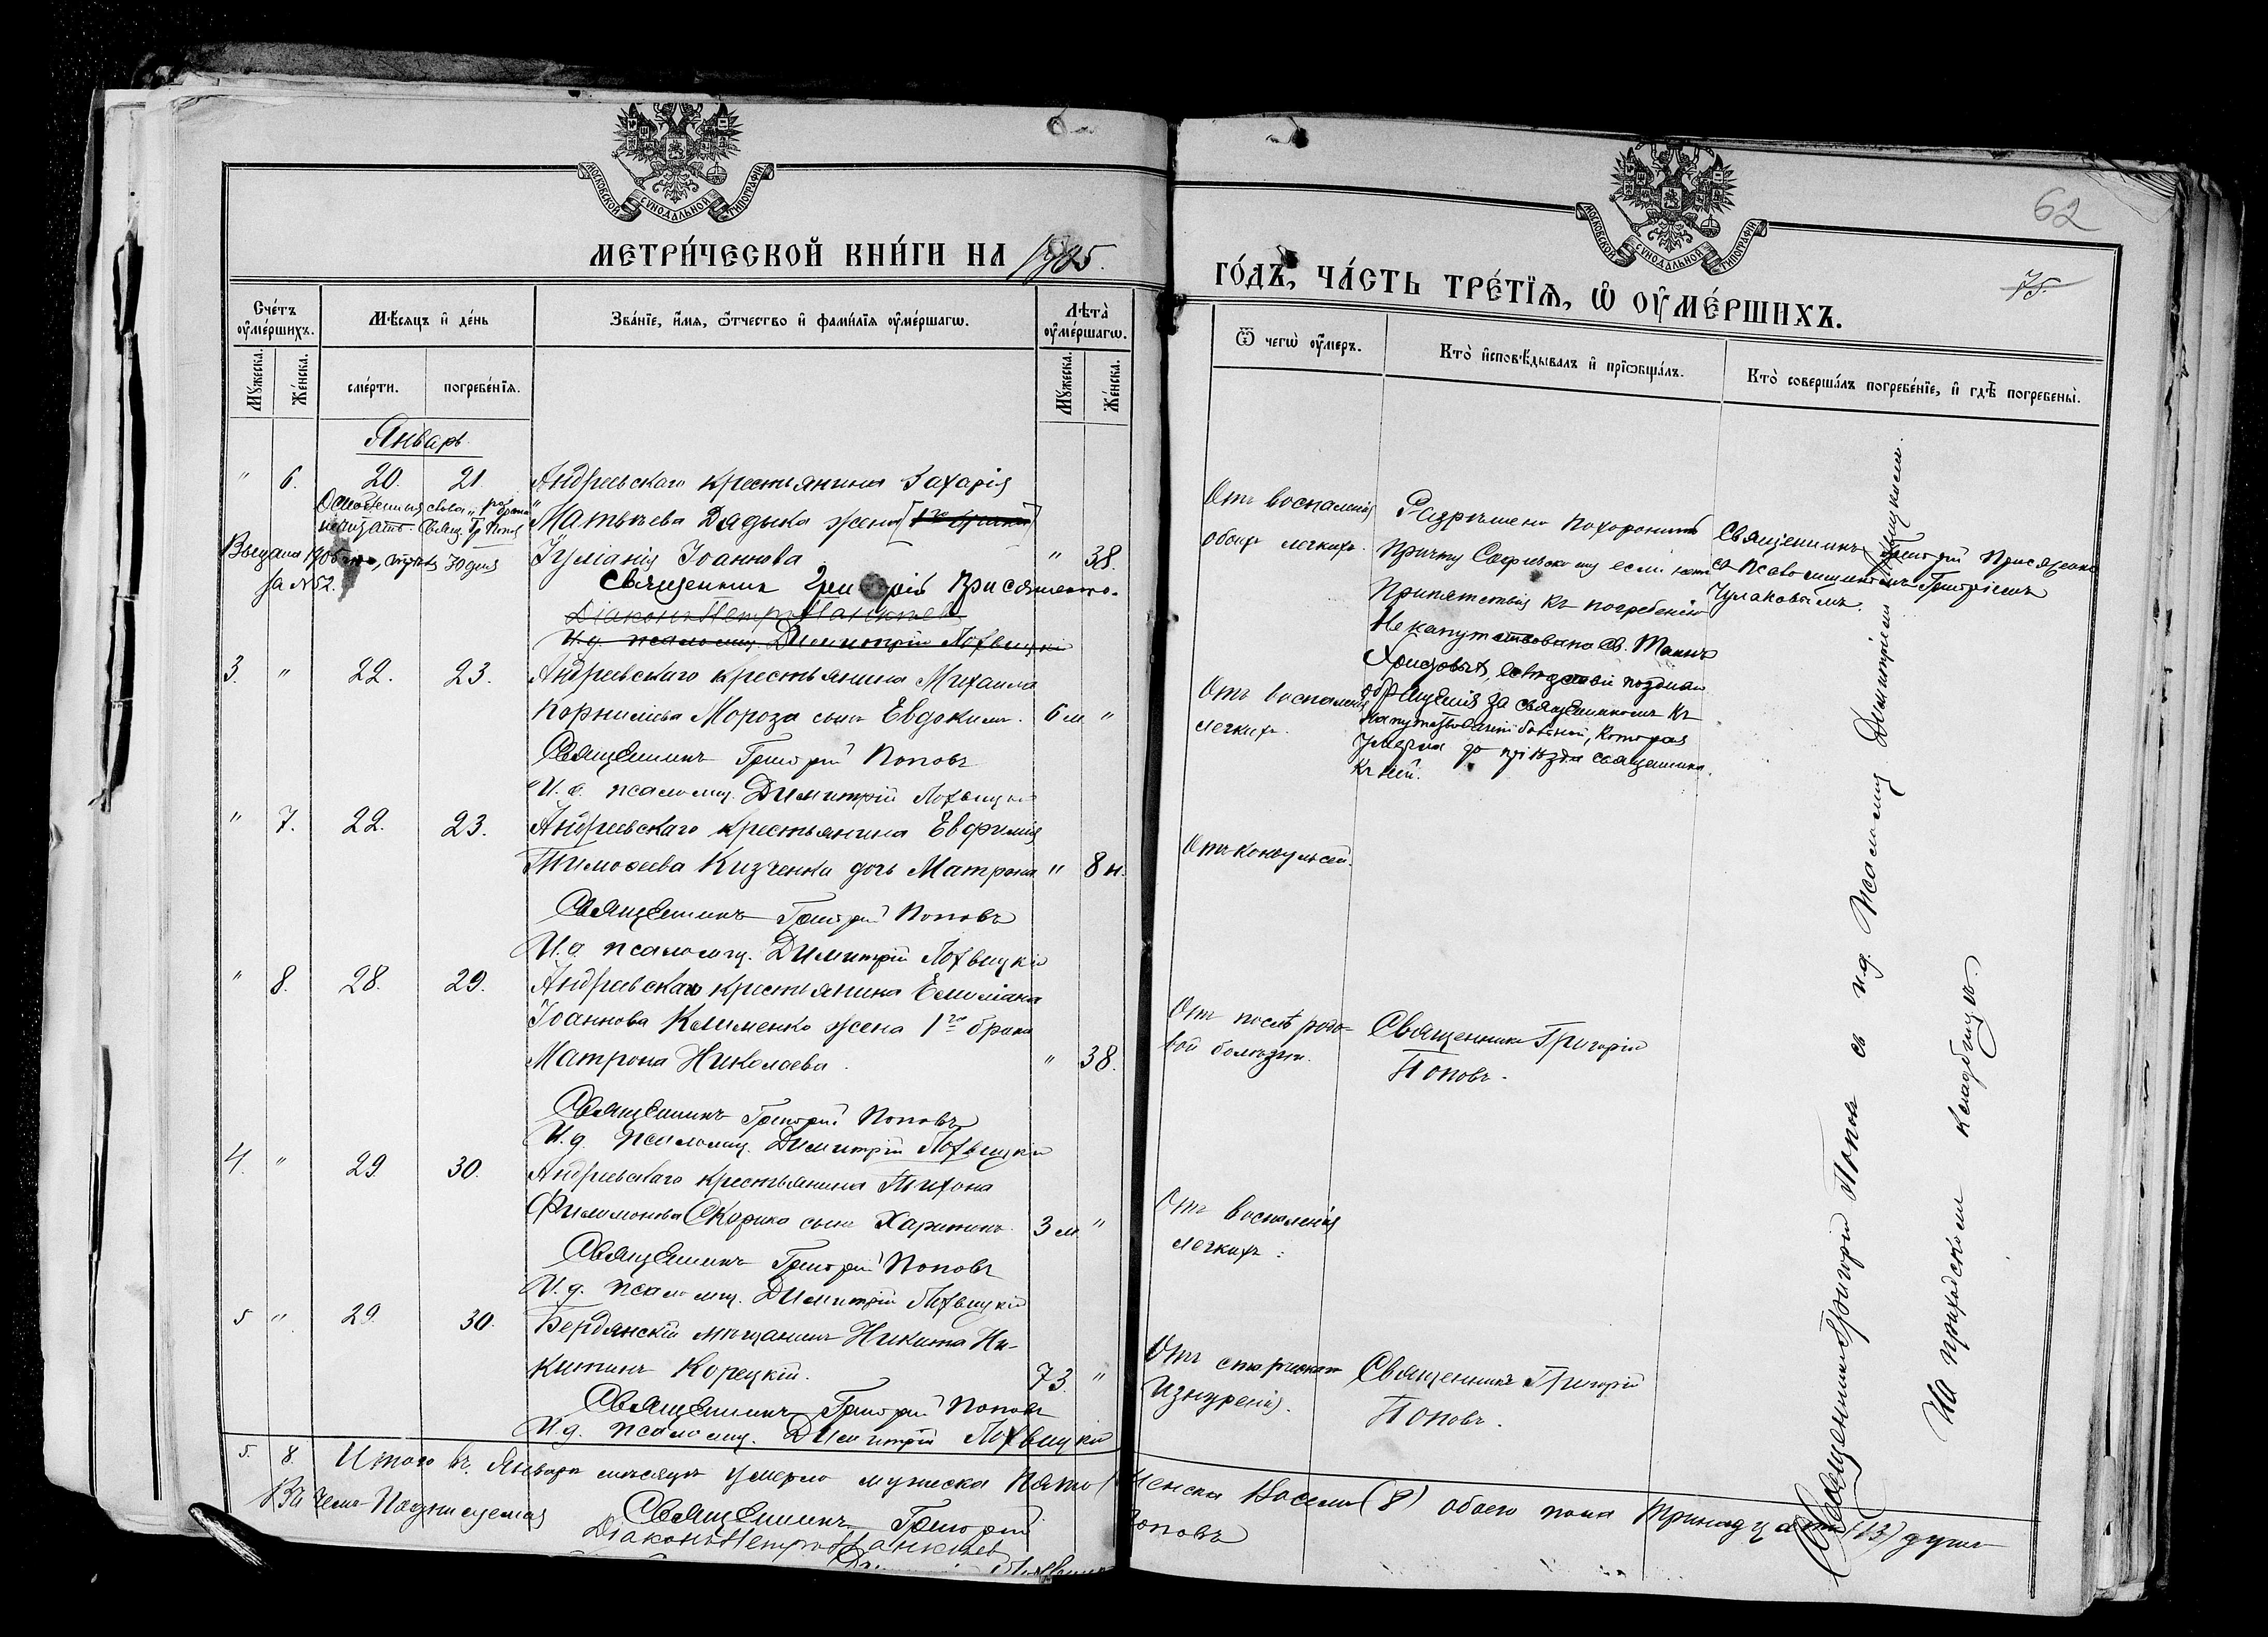 МОСКОВСКОЙ СѴНОДАЛЬНОЙ ТИПОГРАФІИ
МЕТРИ́ЧЕСКОЙ КНИ́ГИ НА 1905.
Сче́тъ оу҆ме́ршихъ.
Мѣ́сяцъ и҆ де́нь
Зва́нїе, и҆́мѧ, ѻ҆́тчество и҆ фами́лїѧ оу҆ме́ршагѡ.
Лѣ́та оу҆ме́ршагѡ.
Мꙋ́жеска.
Же́нска.
сме́рти.
погребе́нїѧ.
Мꙋ́жеска.
Же́нска.
Январь
" 6. 20. 21. Андреевскаго крестьянина Захарія
Матвѣева Дядька жена [1го брака]
Іуліанія Іоаннова " 38.
Священникъ Григорій Присяженко.
Діаконъ Петръ
И. д. псаломщ. Димитрій Лохвицкій
3. " 22. 23. Андреевскаго крестьянина Михаила
Корниліева Мороза сынъ Евдокимъ. 6 м "
Священникъ Григорій Поповъ
И. д. псаломщ. Димитрій Лохвицкій
" 7. 22. 23. Андреевскаго крестьянина Евфимія
Тимофеева Кизченка дочь Матрона " 8 н.
Священникъ Григорій Поповъ
И. д. псаломщ. Димитрій Лохвицкій
" 8. 28. 29. Андреевскаго крестьянина Емиліана
Іоаннова Клименко жена 1го брака
Матрона Николаева. " 38.
Священникъ Григорій Поповъ
И. д. псаломщ. Димитрій Лохвицкій
4. " 29 30. Андреевскаго крестьянина Тихона
Филимонова Скорика сынъ Харитонъ. 3 м "
Священникъ Григорій Поповъ
И. д. псаломщ. Димитрій Лохвицкій
5 " 29. 30. Бердянскій мѣщанинъ Никита Ни-
китинъ Корецкій. 73. "
Священникъ Григорій Поповъ
И. д. псаломщ. Димитрій Лохвицкій
5. 8. Итого въ Январѣ мѣсяцѣ умерло мужеска пять
Въ чемъ Подписуемся Священникъ Григорій
Діаконъ Петръ
МОСКОВСКОЙ СѴНОДАЛЬНОЙ ТИПОГРАФІИ
62
75.
ГО́ДЪ, ЧА́СТЬ ТРЕ́ТЇѦ, Ѡ҆ ОУ҆МЕ́РШИХЪ.
Ѿ чегѡ̀ оу҆́меръ.
Кто̀ и҆сповѣ́дывалъ и҆ прїѻбща́лъ.
Кто̀ соверша́лъ погребе́нїе, и҆ гдѣ̀ погребены̀.
Отъ воспаленія
обоихъ легкихъ.
Разрѣшено похоронить
причту Софіевскому если нѣтъ
препятствія къ погребенію
Не напутствована Св. Таинъ
Христовыхъ, вслѣдствіе поздняго
обращенія за священникомъ къ
напутствованію больной, которая
умерла до пріѣзда священника
къ ней.
Священникъ Григорій Присяженко
съ псаломщикомъ Григоріемъ
Чулаковымъ.
Отъ воспаленія
легкихъ.
Отъ конвульсій.
Отъ послѣ родо-
вой болѣзни.
Священникъ Григорій
Поповъ.
Отъ воспаленія
легкихъ.
Отъ старческаго
изнуренія.
Священникъ Григорій
Поповъ.
Священникъ Григорій Поповъ съ и. д. Псаломщ. Димитріемъ Лохвицкимъ
На приходскомъ кладбищѣ.
женска Восемь (8) обоего пола Тринадцать (13) душъ
Поповъ